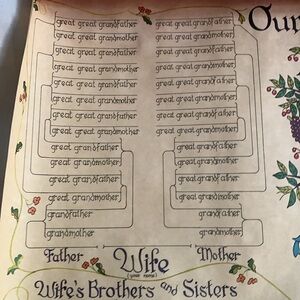 Our
great great grandfather great great grandfather
great great grandmother great great grandmother
great great grandfather great great grandfather
great great grandmother great great grandmother
great great grandfather great great grandfather
great great grandmother great great grandmother
great great grandfather great great grandfather
great great grandmother great great grandmother
great grandfather great grandfather
great grandmother great grandmother
great grandfather great grandfather
great grandmother great grandmother
grandfather grandfather
grandmother grandmother
Father Wife Mother
(your name)
Wife's Brothers and Sisters